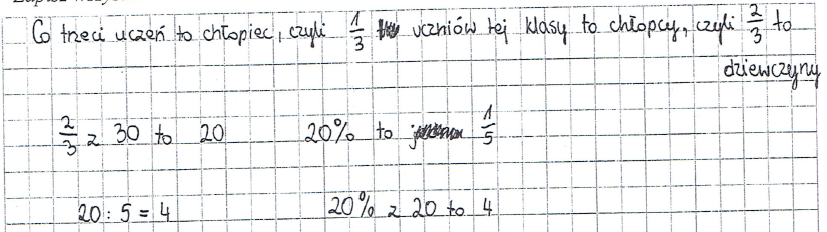 Co trzeci uczeń to chłopiec, czyli 1/3 uczniów tej klasy to chłopcy, czyli 2/3 to
dziewczyny
2/3 z 30 to 20 20% to 1/5
20 : 5 = 4 20% z 20 to 4